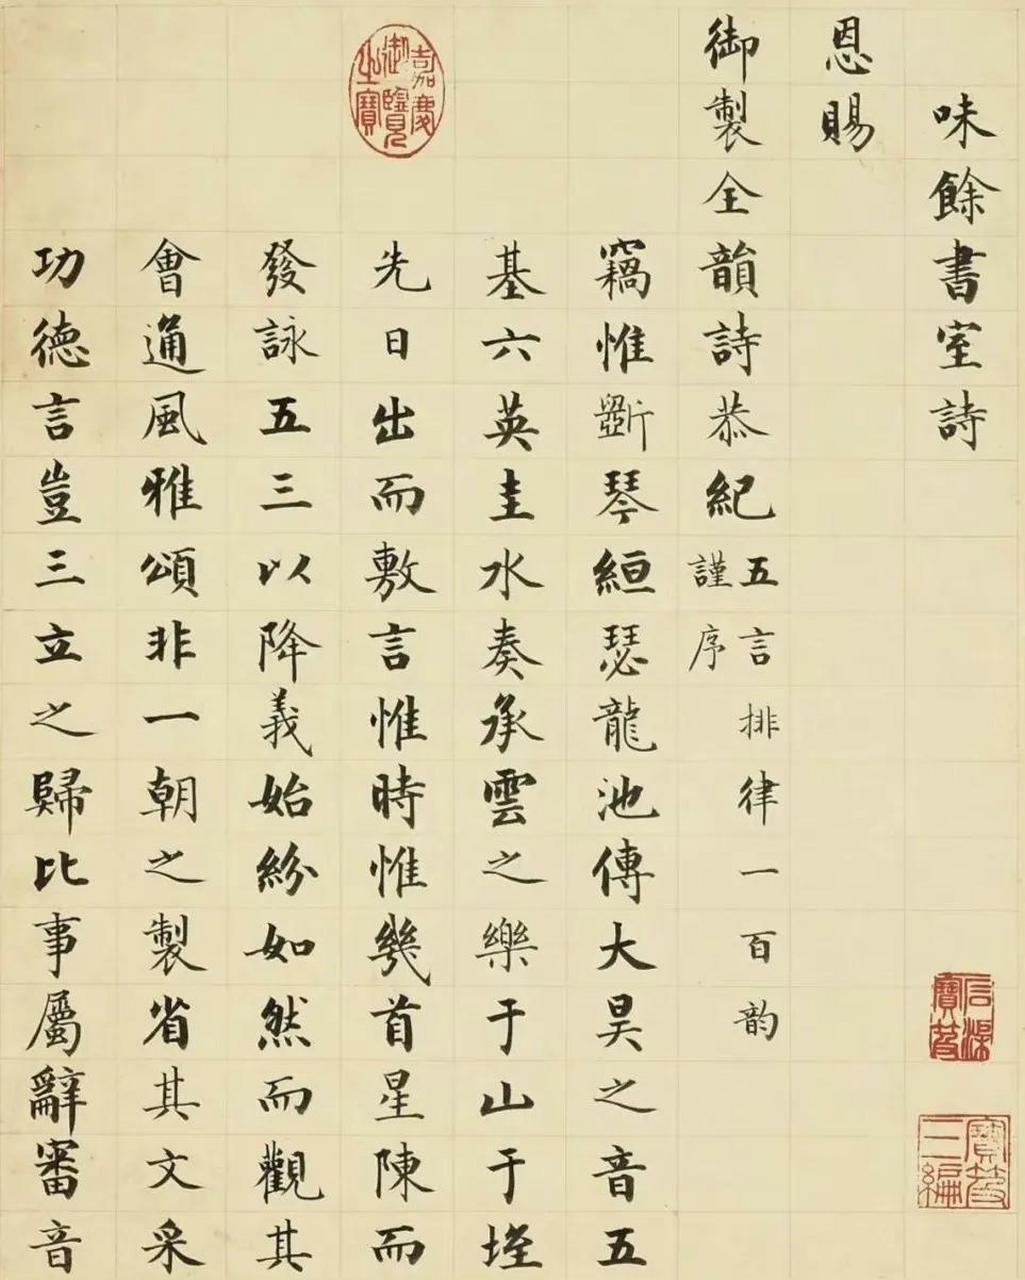 味餘書室詩
恩賜
御製全韻詩恭紀五言排律一百韵
謹序
竊惟斲琴絙瑟龍池傳大昊之音五
基六英圭水奏承雲之樂于山于垤
先日出而敷言惟時惟幾首星陳而
發詠五三以降義始紛如然而觀其
會通風雅頌非一朝之製省其文采
功德言豈三立之歸比事屬辭審音
嘉慶御覽之寶
石渠寶笈
寶笈三編